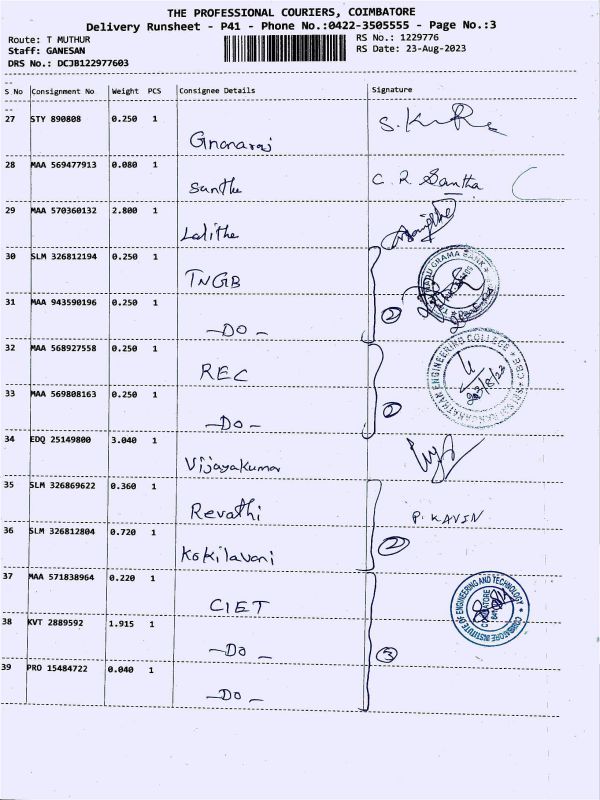 THE PROFESSIONAL COURIERS, COIMBATORE
Delivery Runsheet - P41 - Phone No.:0422-3505555 - Page No.:3
Route: T MUTHUR RS No.: 1229776
Staff: GANESAN RS Date: 23-Aug-2023
DRS No.: DCJB122977603
S No Consignment No Weight PCS Consignee Details Signature
27 STY 890808 0.250 1
Gnanaraj
28 MAA 569477913 0.080 1 C. R. Santha
Santha
29 MAA 570360132 2.800 1
Lalitha
30 SLM 326812194 0.250 1
TNGB
31 MAA 943590196 0.250 1 2
-DO-
32 MAA 568927558 0.250 1
REC
33 MAA 569808163 0.250 1
-DO-
34 EDQ 25149800 3.040 1
Vijayakumar
35 SLM 326869622 0.360 1
Revathi P. KAVIN
36 SLM 326812804 0.720 1 2
Kokilavani
37 MAA 571838964 0.220 1
CIET COIMBATORE INSTITUTE OF ENGINEERING AND TECHNOLOGY
38 KVT 2889592 1.915 1
-DO- 3
39 PRO 15484722 0.040 1
-DO-